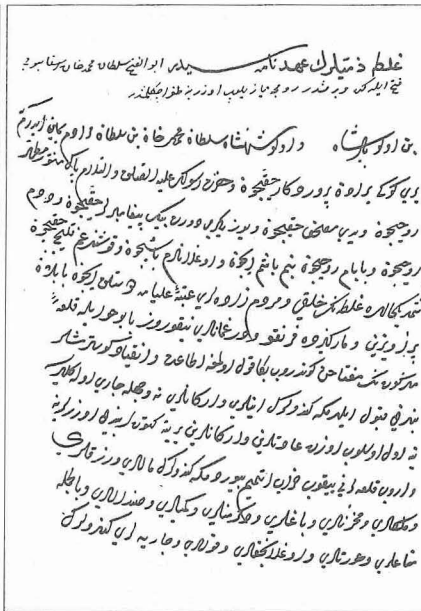 غلطه ذميلرك عهدنامه سيدر ابو الفتح سلطان محمد خان
فتح ايلدكن ويرمشدر رومجه يازيلوب اوزرينه طغرا چكلمشدر
بن اولو پادشاه و اولو شهنشاه سلطان محمد خان بن سلطان مراد خانم يمين ايدرم كه
يري كوكي يرادن پروردكار حقيچون وحضرت رسولك عليه الصلاة والسلام پاك منور مطهر
روحيچون ويدي مصحف حقيچون ويوز يكرمي دورت بيك پيغامبرلر حقيچون ودده م
روحيچون وبابام روحيچون بنم باشم ايچون واوغلانلرم باشيچون وقوشندغم قليج حقيچون
شمديكي حالده غلطه نك خلقي ومردم زاده لري عتبهٔ عليامه دوستلق ايچون بابلان
پراويزين وماركيزوه فرنقو وترجمانلري نيقوروز بابوغو ايله قلعهٔ
مزبوره نك مفتاحن كوندروب بكا قول اولمغه اطاعت وانقياد كوسترمشلر
بن دخي قبول ايلدم كه كندولرك آيينلري واركانلري نه وجهله جاري اوله كلديسه
ينه اول اسلوب اوزره عادتلرين واركانلرين يرينه كتورلر بن دخي اوزرلرينه
واروب قلعه لرني ييقوب خراب ايتميم بيوردم كه كندولرك ماللري ورزقلري
وملكلري ومخزنلري وباغلري ودكرمنلري وكميلري وصندللري وبالجمله
متاعلري وعورتلري واوغلانجقلري وقوللري وجاريه لري كندولرك